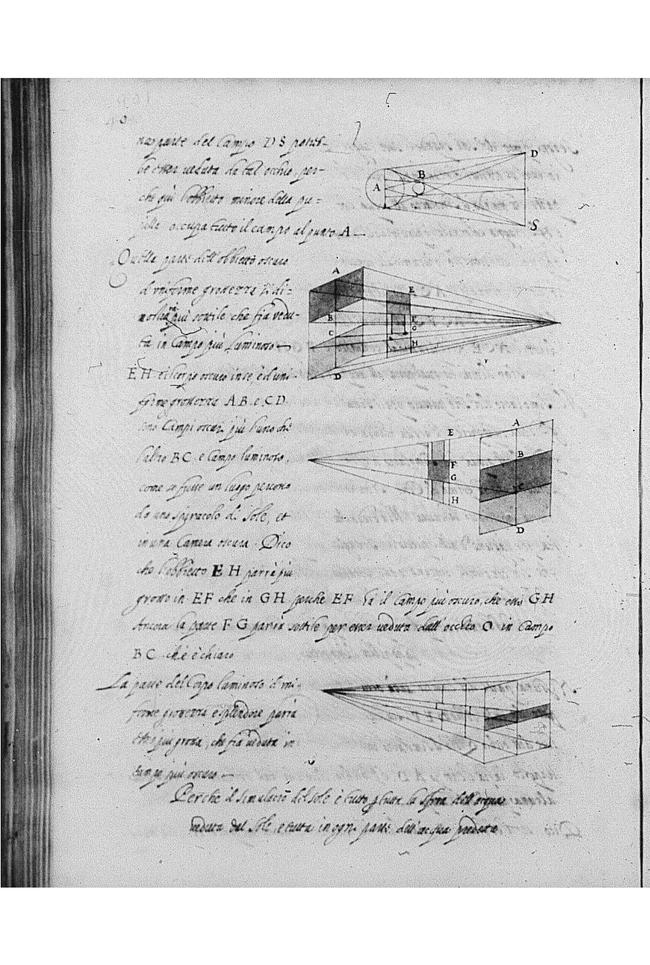 parte del Campo DS potreb-
be esser veduta da tal occhio, per-
che qui l'obbietto minore della pu-
pilla occupa tutto il campo al punto A
Quella parte dell'obbietto oscuro
d'uniforme grossezza si di-
mostra più sottile che fia vedu-
ta in Campo più luminoso
EH è il corpo oscuro in se, è d'uni
forme grossezza AB e CD
sono Campi oscuri più l'uno che
l'altro BC è Campo luminoso,
come se fusse un luogo percosso
da uno spiracolo di Sole, et
in una Camera oscura. Dico
che l'obbietto EH parrà più
grosso in EF che in GH perche EF ha il Campo più oscuro, che esso GH
Ancora la parte FG parrà sottile per esser veduta dall'occhio O in Campo
BC ch'è chiaro
La parte del Corpo luminoso di uni
forme grossezza e splendore parrà
esser più grossa, che fia veduta in
campo più oscuro
Perche il simulacro del sole è tutto per tutta la sfera dell'acqua
veduta dal Sole, e tutta in ogni parte dell'acqua predetta
D
B
A
S
A
E
B
F
G
C
H
D
A
E
B
F
G
C
H
D